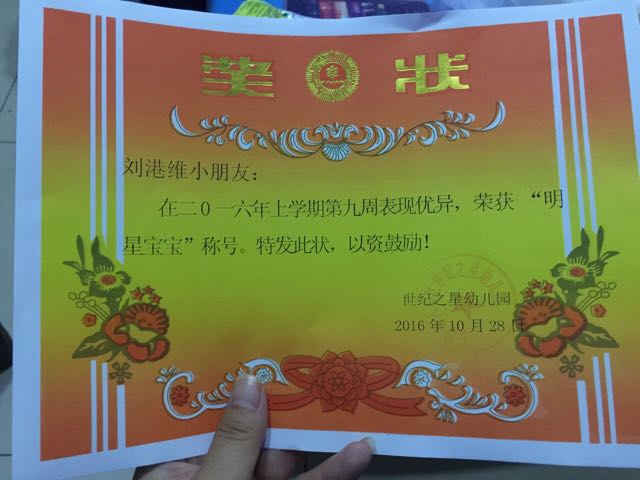 奖 状
刘港维小朋友：
在二0一六年上学期第九周表现优异，荣获“明
星宝宝”称号。特发此状，以资鼓励！
世纪之星幼儿园
2016 年 10 月 28 日
世纪之星幼儿